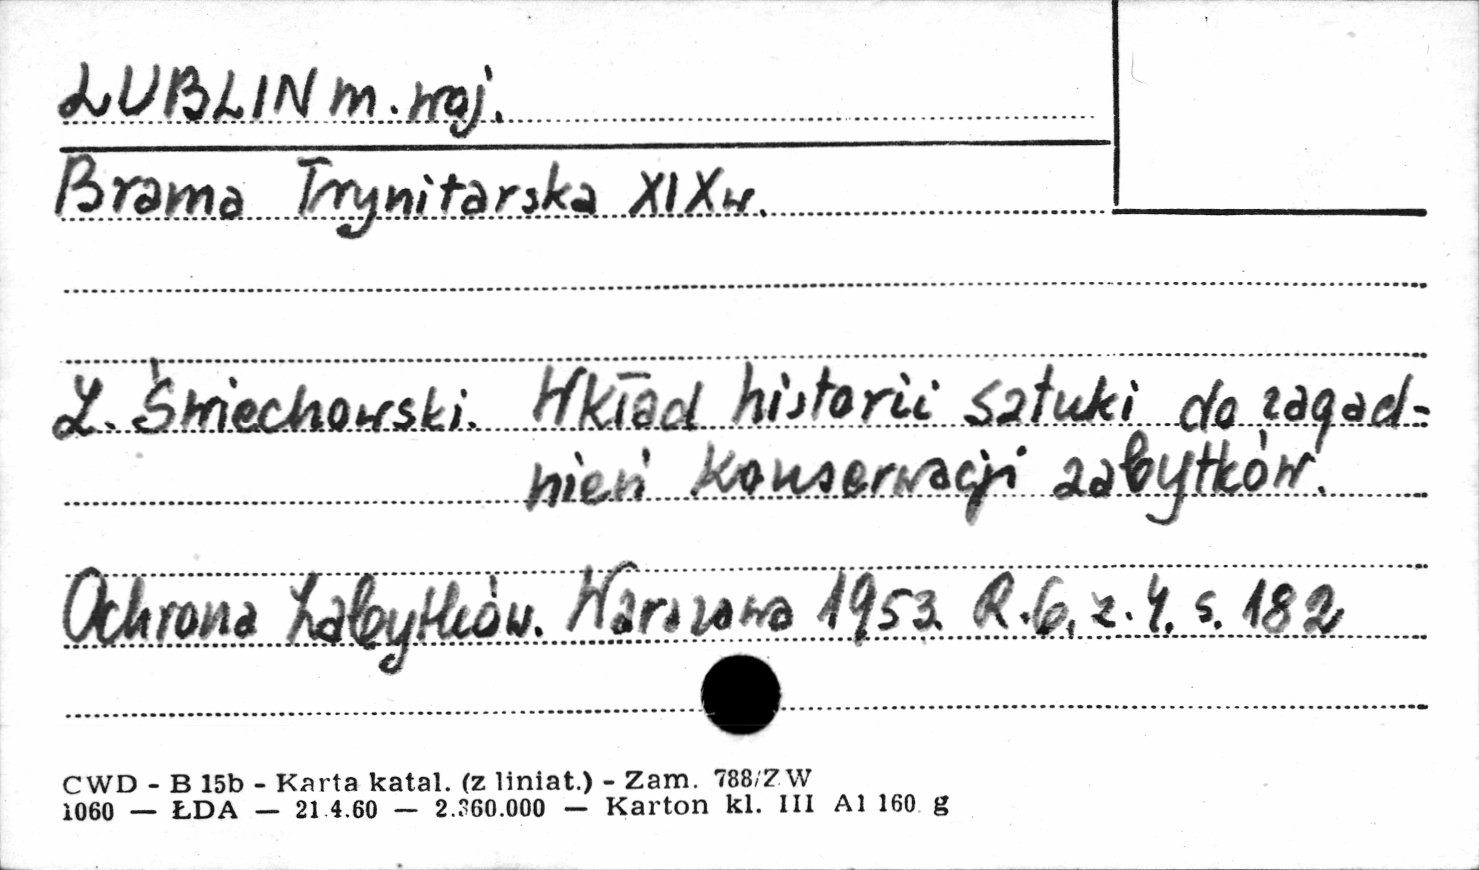 LUBLIN m. woj.
Brama Trynitarska XIX w.
L. Śmiechowski. Wkład historii sztuki do zagad-
nień konserwacji zabytków.
Ochrona Zabytków. Warszawa 1953. R. 6, z. 4, s. 182
CWD - B 15b - Karta katal. (z liniat.) - Zam. 788/ZW
1060 — ŁDA — 21.4.60 — 2.360.000 — Karton kl. III A1 160 g